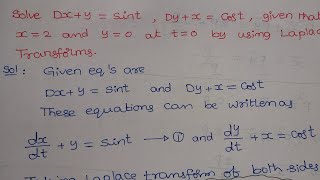 Solve Dx+y = sint , Dy+x = Cost, given that
x=2 and y=0 at t=0 by using Laplac
Transforms.
Sol: Given eq's are
Dx+y = sint and Dy+x = cost
These equations can be written as
dx/dt + y = sint → ① and dy/dt + x = cost
Laplace transform of both sides